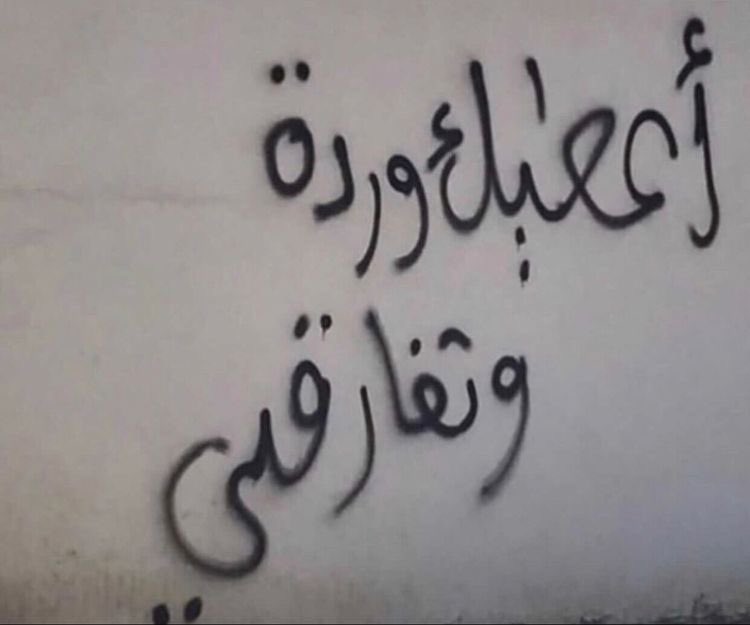 أعطيك وردة
وتفارقيي